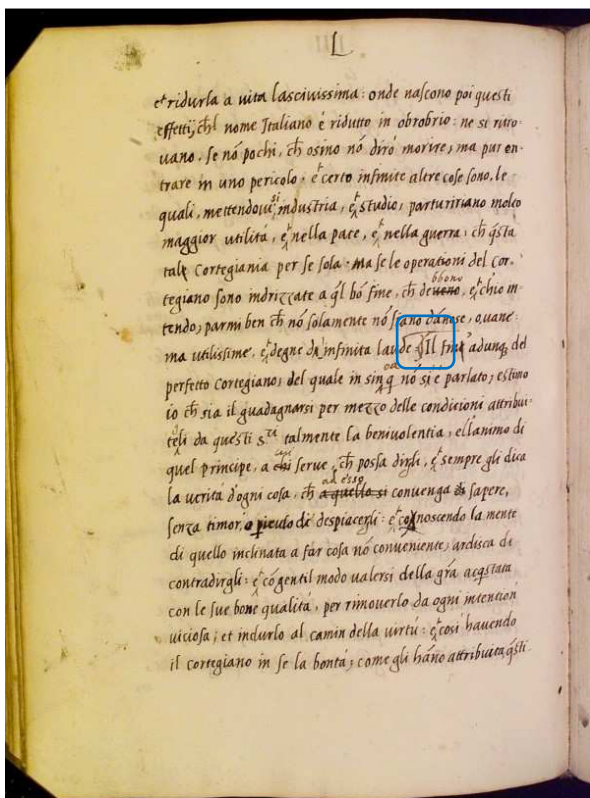 L
et ridurla a vita lascivissima: onde nascono poi questi
effetti, chl nome Italiano è ridutto in obrobrio: ne si ritro-
vano, se nõ pochi, ch̃ osino nõ dirò morire, ma pur en-
trare in uno pericolo. et certo infinite altre cose sono, le
quali, mettendovisi industria, et studio, partuririano molto
maggior utilità, et nella pace, et nella guerra, ch̃ q̃sta
tal Cortegiania per se sola. ma se le operationi del Cor-
tegiano sono indrizzate a q̃l bõ fine, ch̃ debbono, et ch'io in-
tendo; parmi ben ch̃ nõ solamente nõ siano dãnose, o vane:
ma utilissime, et degne d'infinita laude Il fine adunq̃ del
perfetto Cortegiano, del quale in sin q̃ nõ si è parlato, estimo
io ch̃ sia il guadagnarsi per mezzo delle condicioni attribui-
teli da questi sri talmente la benivolentia, e l'animo di
quel principe, a cui serve, ch̃ possa dirgli, et sempre gli dica
la verità d'ogni cosa, ch̃ ad esso convenga sapere,
senza timor, o pericolo di despiacergli: et conoscendo la mente
di quello inclinata a far cosa nõ conveniente, ardisca di
contradirgli: et cõ gentil modo valersi della grã acq̃stata
con le sue bone qualità, per rimoverlo da ogni intention
viciosa, et indurlo al camin della virtù: et così havendo
il cortegiano in se la bontà, come gli hãno attribuita q̃sti